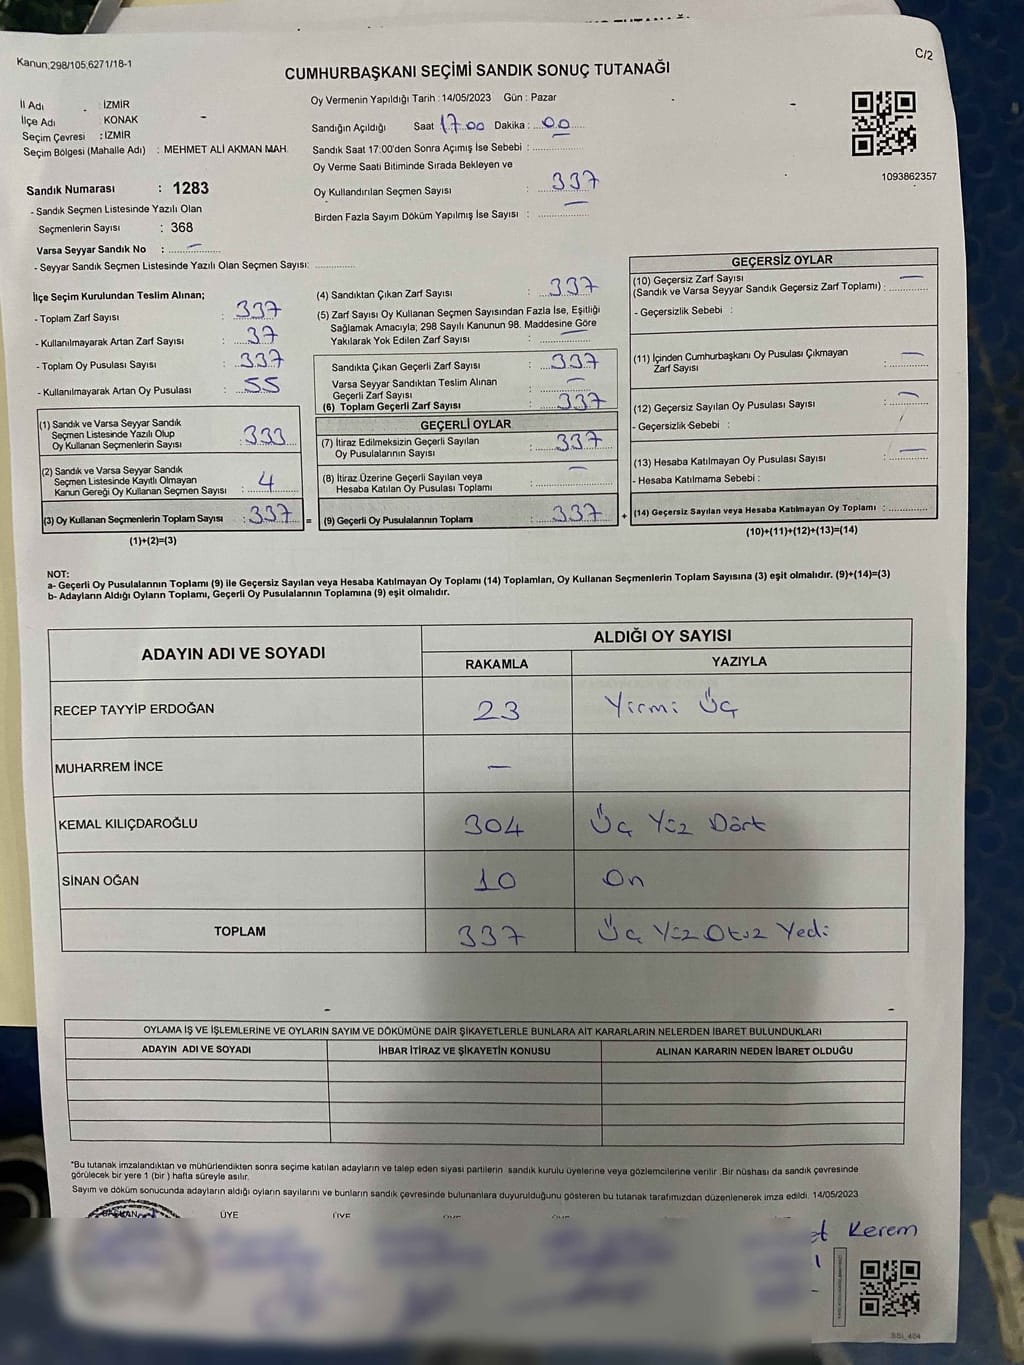 Kanun;298/105,6271/18-1
C/2
CUMHURBAŞKANI SEÇİMİ SANDIK SONUÇ TUTANAĞI
İl Adı : İZMİR
İlçe Adı : KONAK
Seçim Çevresi : İZMİR
Seçim Bölgesi (Mahalle Adı) : MEHMET ALİ AKMAN MAH.
Sandık Numarası : 1283
- Sandık Seçmen Listesinde Yazılı Olan
Seçmenlerin Sayısı : 368
Varsa Seyyar Sandık No : —
- Seyyar Sandık Seçmen Listesinde Yazılı Olan Seçmen Sayısı:
Oy Vermenin Yapıldığı Tarih : 14/05/2023 Gün : Pazar
Sandığın Açıldığı Saat 17.00 Dakika : 00
Sandık Saat 17:00'den Sonra Açımış İse Sebebi :
Oy Verme Saati Bitiminde Sırada Bekleyen ve
Oy Kullandırılan Seçmen Sayısı : 337
Birden Fazla Sayım Döküm Yapılmış İse Sayısı : —
1093862357
İlçe Seçim Kurulundan Teslim Alınan;
- Toplam Zarf Sayısı : 337
- Kullanılmayarak Artan Zarf Sayısı : 37
- Toplam Oy Pusulası Sayısı : 337
- Kullanılmayarak Artan Oy Pusulası : 55
(1) Sandık ve Varsa Seyyar Sandık
Seçmen Listesinde Yazılı Olup
Oy Kullanan Seçmenlerin Sayısı : 333
(2) Sandık ve Varsa Seyyar Sandık
Seçmen Listesinde Kayıtlı Olmayan
Kanun Gereği Oy Kullanan Seçmen Sayısı : 4
(3) Oy Kullanan Seçmenlerin Toplam Sayısı : 337 =
(1)+(2)=(3)
(4) Sandıktan Çıkan Zarf Sayısı : 337
(5) Zarf Sayısı Oy Kullanan Seçmen Sayısından Fazla İse, Eşitliği
Sağlamak Amacıyla; 298 Sayılı Kanunun 98. Maddesine Göre
Yakılarak Yok Edilen Zarf Sayısı : —
Sandıkta Çıkan Geçerli Zarf Sayısı : 337
Varsa Seyyar Sandıktan Teslim Alınan
Geçerli Zarf Sayısı : —
(6) Toplam Geçerli Zarf Sayısı : 337
GEÇERLİ OYLAR
(7) İtiraz Edilmeksizin Geçerli Sayılan
Oy Pusulalarının Sayısı : 337
(8) İtiraz Üzerine Geçerli Sayılan veya
Hesaba Katılan Oy Pusulası Toplamı : —
(9) Geçerli Oy Pusulalarının Toplamı : 337 +
GEÇERSİZ OYLAR
(10) Geçersiz Zarf Sayısı
(Sandık ve Varsa Seyyar Sandık Geçersiz Zarf Toplamı) : —
- Geçersizlik Sebebi :
(11) İçinden Cumhurbaşkanı Oy Pusulası Çıkmayan
Zarf Sayısı : —
(12) Geçersiz Sayılan Oy Pusulası Sayısı : —
- Geçersizlik Sebebi :
(13) Hesaba Katılmayan Oy Pusulası Sayısı : —
- Hesaba Katılmama Sebebi :
(14) Geçersiz Sayılan veya Hesaba Katılmayan Oy Toplamı :
(10)+(11)+(12)+(13)=(14)
NOT:
a- Geçerli Oy Pusulalarının Toplamı (9) ile Geçersiz Sayılan veya Hesaba Katılmayan Oy Toplamı (14) Toplamları, Oy Kullanan Seçmenlerin Toplam Sayısına (3) eşit olmalıdır. (9)+(14)=(3)
b- Adayların Aldığı Oyların Toplamı, Geçerli Oy Pusulalarının Toplamına (9) eşit olmalıdır.
ADAYIN ADI VE SOYADI
ALDIĞI OY SAYISI
RAKAMLA YAZIYLA
RECEP TAYYİP ERDOĞAN 23 Yirmi Üç
MUHARREM İNCE —
KEMAL KILIÇDAROĞLU 304 Üç Yüz Dört
SİNAN OĞAN 10 On
TOPLAM 337 Üç Yüz Otuz Yedi
OYLAMA İŞ VE İŞLEMLERİNE VE OYLARIN SAYIM VE DÖKÜMÜNE DAİR ŞİKAYETLERLE BUNLARA AİT KARARLARIN NELERDEN İBARET BULUNDUKLARI
ADAYIN ADI VE SOYADI İHBAR İTİRAZ VE ŞİKAYETİN KONUSU ALINAN KARARIN NEDEN İBARET OLDUĞU
*Bu tutanak imzalandıktan ve mühürlendikten sonra seçime katılan adayların ve talep eden siyasi partilerin sandık kurulu üyelerine veya gözlemcilerine verilir .Bir nüshası da sandık çevresinde
görülecek bir yere 1 (bir ) hafta süreyle asılır.
Sayım ve döküm sonucunda adayların aldığı oyların sayılarını ve bunların sandık çevresinde bulunanlara duyurulduğunu gösteren bu tutanak tarafımızdan düzenlenerek imza edildi. 14/05/2023
BAŞKAN ÜYE ÜYE
Kerem